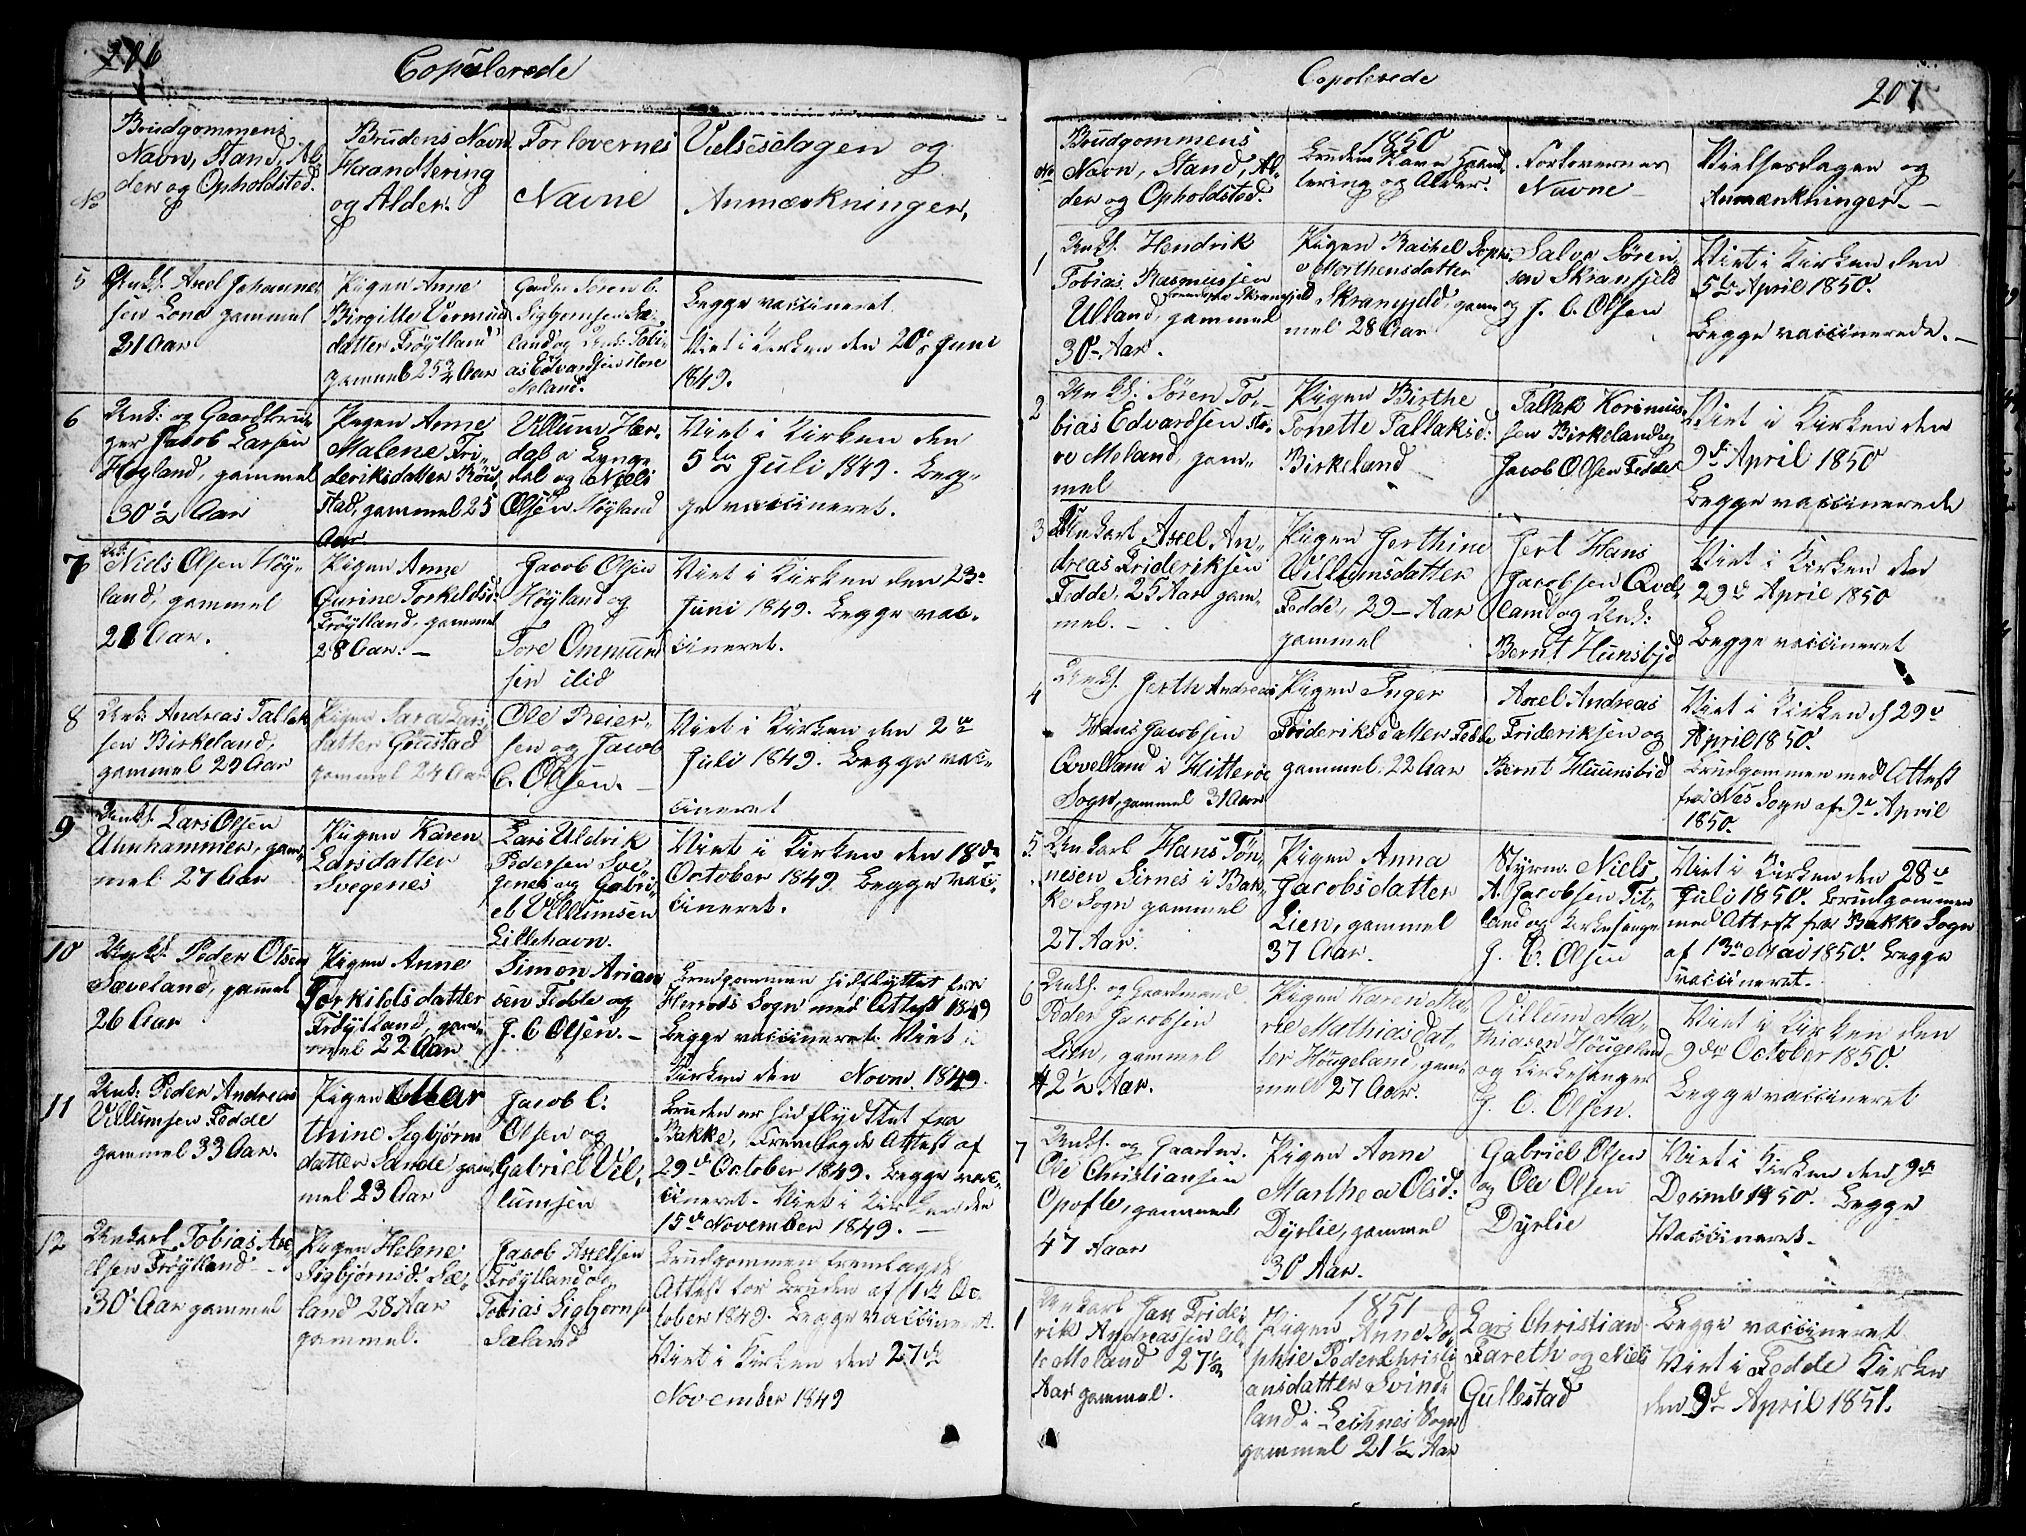 206
Copulerede
No
Brudgommens
Navn, Stand, Al-
der og Opholdsted.
Brudens Navn
Haandtering
og Alder.
Forlovernes
Navne
Vielsesdagen og
Anmærkninger,
5
Unkf. Axel Johannes
sen Lone gammel
31 Aar
Pigen Anne
Birgitte Vermund
datter Frøytland
gammel 25 3/4 Aar
Gaardm Søren C.
Sigbjørnsen Sæ-
land og Unk: Tobi-
as Edvardsen store
Meland.
Begge vaccineret.
Viet i Kirken den 20de Juni
1849.
6
Unk: og Gaardbru-
ger Jacob Larsen
Høyland, gammel
30 1/2 Aar
Pigen Anne
Malene Fri-
deriksdatter Røu-
stad, gammel 25
Aar.
Villum Hær-
dal a Lyng-
dal og Niels
Olsen Høyland
Viet i Kirken den
5te Juli 1849. Beg-
ge vaccineret.
7
Unk:
Niels Olsen Høy-
land, gammel
21 Aar.
Pigen Anne
Gurine Torkeldsd:
Frøytland, gammel
28 Aar. –
Jacob Olsen
Høyland og
Tore Ommund
sen ilid
Viet i Kirken den 23de
Juni 1849. Begge vac-
cineret.
8
Unk: Andreas Tallak
sen Birkeland,
gammel 29 Aar
Pigen Sara Lars
datter Goustad
gammel 24 Aar
Ole Reier-
sen og Jacob
C. Olsen. –
Viet i Kirken den 2de
Juli 1849. Begge vac-
cineret
9
Unkf. Lars Olsen
Uhnhammer, gam-
mel 27 Aar
Pigen Karen
Larsdatter
Svegenes
Lars Uldrik
Pedersen Sve-
genes og Gabri-
el Villumsen
Lillehavn.
Viet i Kirken den 18de
October 1849. Begge vac-
cineret.
10
Unkf. Peder Olsen
Sæveland, gammel
26 Aar
Pigen Anne
Torkildsdatter
Frøytland, gam-
mel 22 Aar
Simon Arian
sen Fedde og
J. C Olsen. –
Brudgommen hidflyttet fra
Herreds Sogn med Attest 1849
Begge vaccineret. Viet i
Kirken den Novm. 1849.
11
Unk: Peder Andreas
Villumsen Fedde
gammel 33 Aar.
Pigen Mar
thine Sigbjørns
datter Sande gam-
mel 23 Aar
Jacob C.
Olsen og
Gabriel Vil-
lumsen
Bruden er hidflydttet fra
Bakke, Fremlagde Attest af
29de October 1849. Begge vac-
cineret. Viet i Kirken den
15de November 1849. –
12
Unkarl Tobias Ax-
elsen Frøytland
30 Aar gammel
Pigen Helene
Sigbjørnsd. Sæ-
land 28 Aar
gammel.
Jacob Axelsen
Frøytland og
Tobias Sigbjørnse
Sæland
Brudgommen fremlagde
Attest for Bruden af 1de Oc
tober 1849. Begge vaccineret.
Viet i Kirken den 27de
November 1849
Copolerede
207
No
Brudgommens
Navn, Stand, Al-
der og Opholdsted.
1850
Brudens Navn Haand-
tering og Alder.
Forlovernes
Navne –
Vielsesdagen og
Anmænkninger. –
1
Unkf. Hendrik
Tobias Rasmussen
Ulland, gammel
30 Aar.
Pigen Rachel Sophi
e Morthensdatter
Skransfjeld, gam-
mel 28 Aar
Salve Søren
sen Skransfjeld
og J. C. Olsen
Viet i Kirken den
5te April 1850.
Begge vaccinerede. –
2
Un Kf. Søren To-
bias Edvardsen sto-
re Meland, gam-
mel
Pigen Birthe
Tonette Tallaksd:
Birkeland
Tallak Korsmus-
sen Birkeland og
Jacob Olsen Fedde
Viet i Kirken den
9de April 1850
Begge vaccinerede
3
Unkarl Axel An-
dreas Frideriksen
Fedde, 25 Aar gam-
mel. –
Pigen Gerthine
Villumsdatter
Fedde, 29 – Aar
gammel
Jert Hans
Jacobsen Qvel-
land og Unk:
Bernt Hunsbjd
Viet i Kirken den
29de April 1850
Begge vaccineret
4
Unkf. Jerth Andreas
Hans Jacobsen
Qvelland i Hitterøe
Sogn, gammel 31 Aar
Pigen Inger
Frideriksdatter Fedde
gammel: 22 Aar
Axel Andreas
Frideriksen og
Bernt Huunsbid
Viet i Kirken d 29de
April 1850.
Brudgommen med Attest
fra Nes Sogn af 9de April
1850.
5.
Unkarl Hans Tøn-
nesen Sirnes i Bak-
ke Sogn gammel
27 Aar.
Pigen Anna
Jacobsdatter
Lien, gammel
37 Aar.
Styrm. Niels
A. Jacobsen Tit-
land og Kirkesanger
J. C. Olsen
Viet i Kirken den 28de
Juli 1850. Brudgommen
med Attest fra Bakke Sogn
af 13de Mai 1850. Begge
vaccineret.
6
Unkf. og Gaardmand
Peder Jacobsen
Lien, gammel
42 1/2 Aar.
Pigen Karen Ma-
rie Mathiasdat-
ter Hougeland, gam-
mel 27 Aar.
Villum Ma-
thiasen Hougeland
og Kirkesanger
J. C. Olsen.
Viet i Kirken den
9de October 1850.
Begge vaccineret
7
Unkf. og Gaardm.
Ole Christiansen
Opofte, gammel
47 Aaar
Pigen Anne
Marthea Olsd:
Dyrlie, gammel
30 Aar.
Gabriel Olsen
og Ole Olsen
Dyrlie
Viet i Kirken den 9de
Decemb 1850. Begge
Vaccineret.
1
Unkarl Jan Fride-
rik Andreassen lil-
le Meland 27 1/2
Aar gammel.
1851
Pigen Anne So-
phie Peder Christi
ansdatter Svind-
land i Leithnes Sogn
gammel 21 1/2 Aar
Lars Christian
Fareth og Niels
Gullestad
Begge vaccineret
Viet i Fedde Kirke
den 9de April 1851.